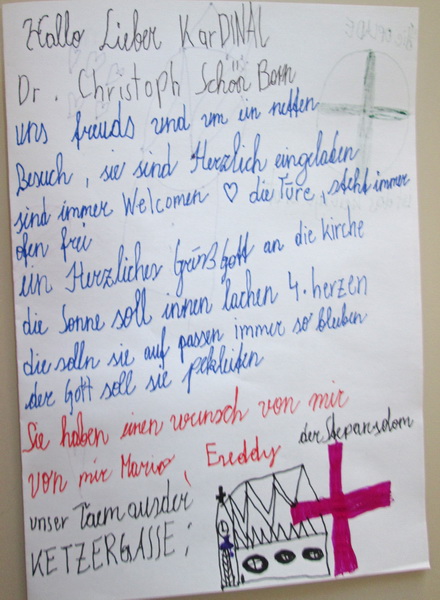 Hallo Lieber KarDINAL
Dr. Christoph Schön Born
uns freuds und um ein netten
Besuch, sie sind Herzlich eingeladen
sind immer Welcomen ♡ die Türe, steht immer
ofen frei
ein Herzlicher Grüß Gott an die kirche
die Sonne soll innen lachen 4. herzen
die solln sie auf passen immer so bleiben
der Gott soll sie pekleiten
Sie haben einen wunsch von mir
von mir Mario, Freddy
der Stepansdom
unser Taem aus der
KETZERGASSE;